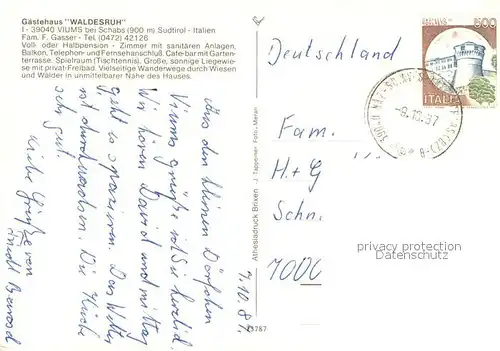 Gästehaus "WALDESRUH"
I - 39040 VIUMS bei Schabs (900 m) Südtirol - Italien
Fam. F. Gasser - Tel. (0472) 42126
Voll- oder Halbpension - Zimmer mit sanitären Anlagen,
Balkon, Telephon- und Fernsehanschluß. Cafe-bar mit Garten-
terrasse. Spielraum (Tischtennis). Große, sonnige Liegewie-
se mit privat-Freibad. Vielseitige Wanderwege durch Wiesen
und Wälder in unmittelbarer Nähe des Hauses.
7.10.87
Aus dem kleinen Dörfchen
Viums grüße ich Sie herzlich.
Wir hören David und mittag
geht's spazieren. Das Wetter
ist durchwachsen. Die Küche
sehr gut.
Liebe Grüße von
Athesiadruck Brixen - J. Tappeiner Foto, Meran
Deutschland
Fam.
H. + G
Schn.
7000
500
ITALIA
-9.10.87
privacy protection
watermark